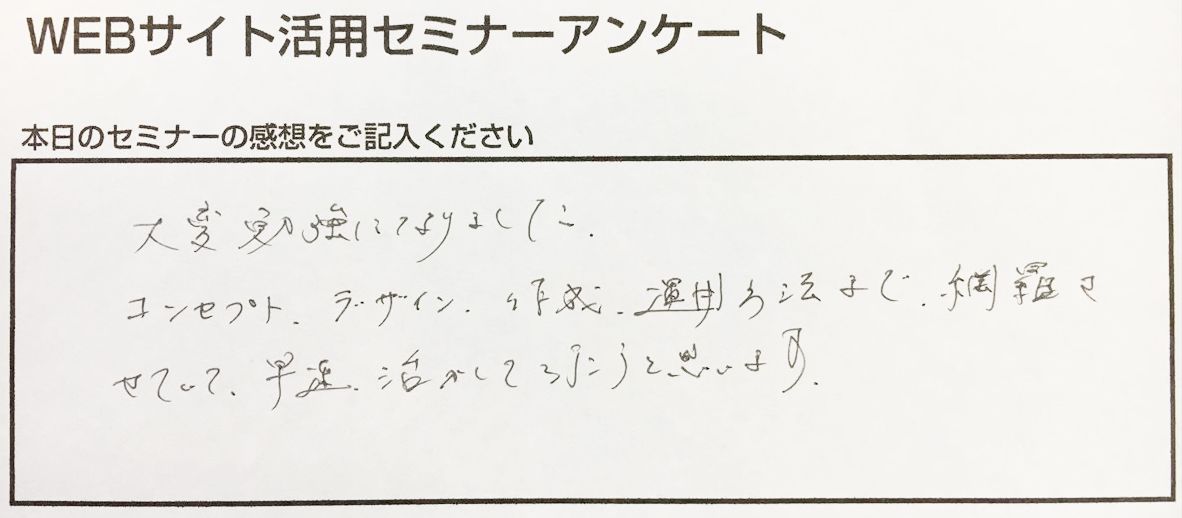 WEBサイト活用セミナーアンケート
本日のセミナーの感想をご記入ください
大変勉強になりました.
コンセプト、デザイン、作成、運用方法まで、網羅さ
せていて、早速、活かしてろうと思います.